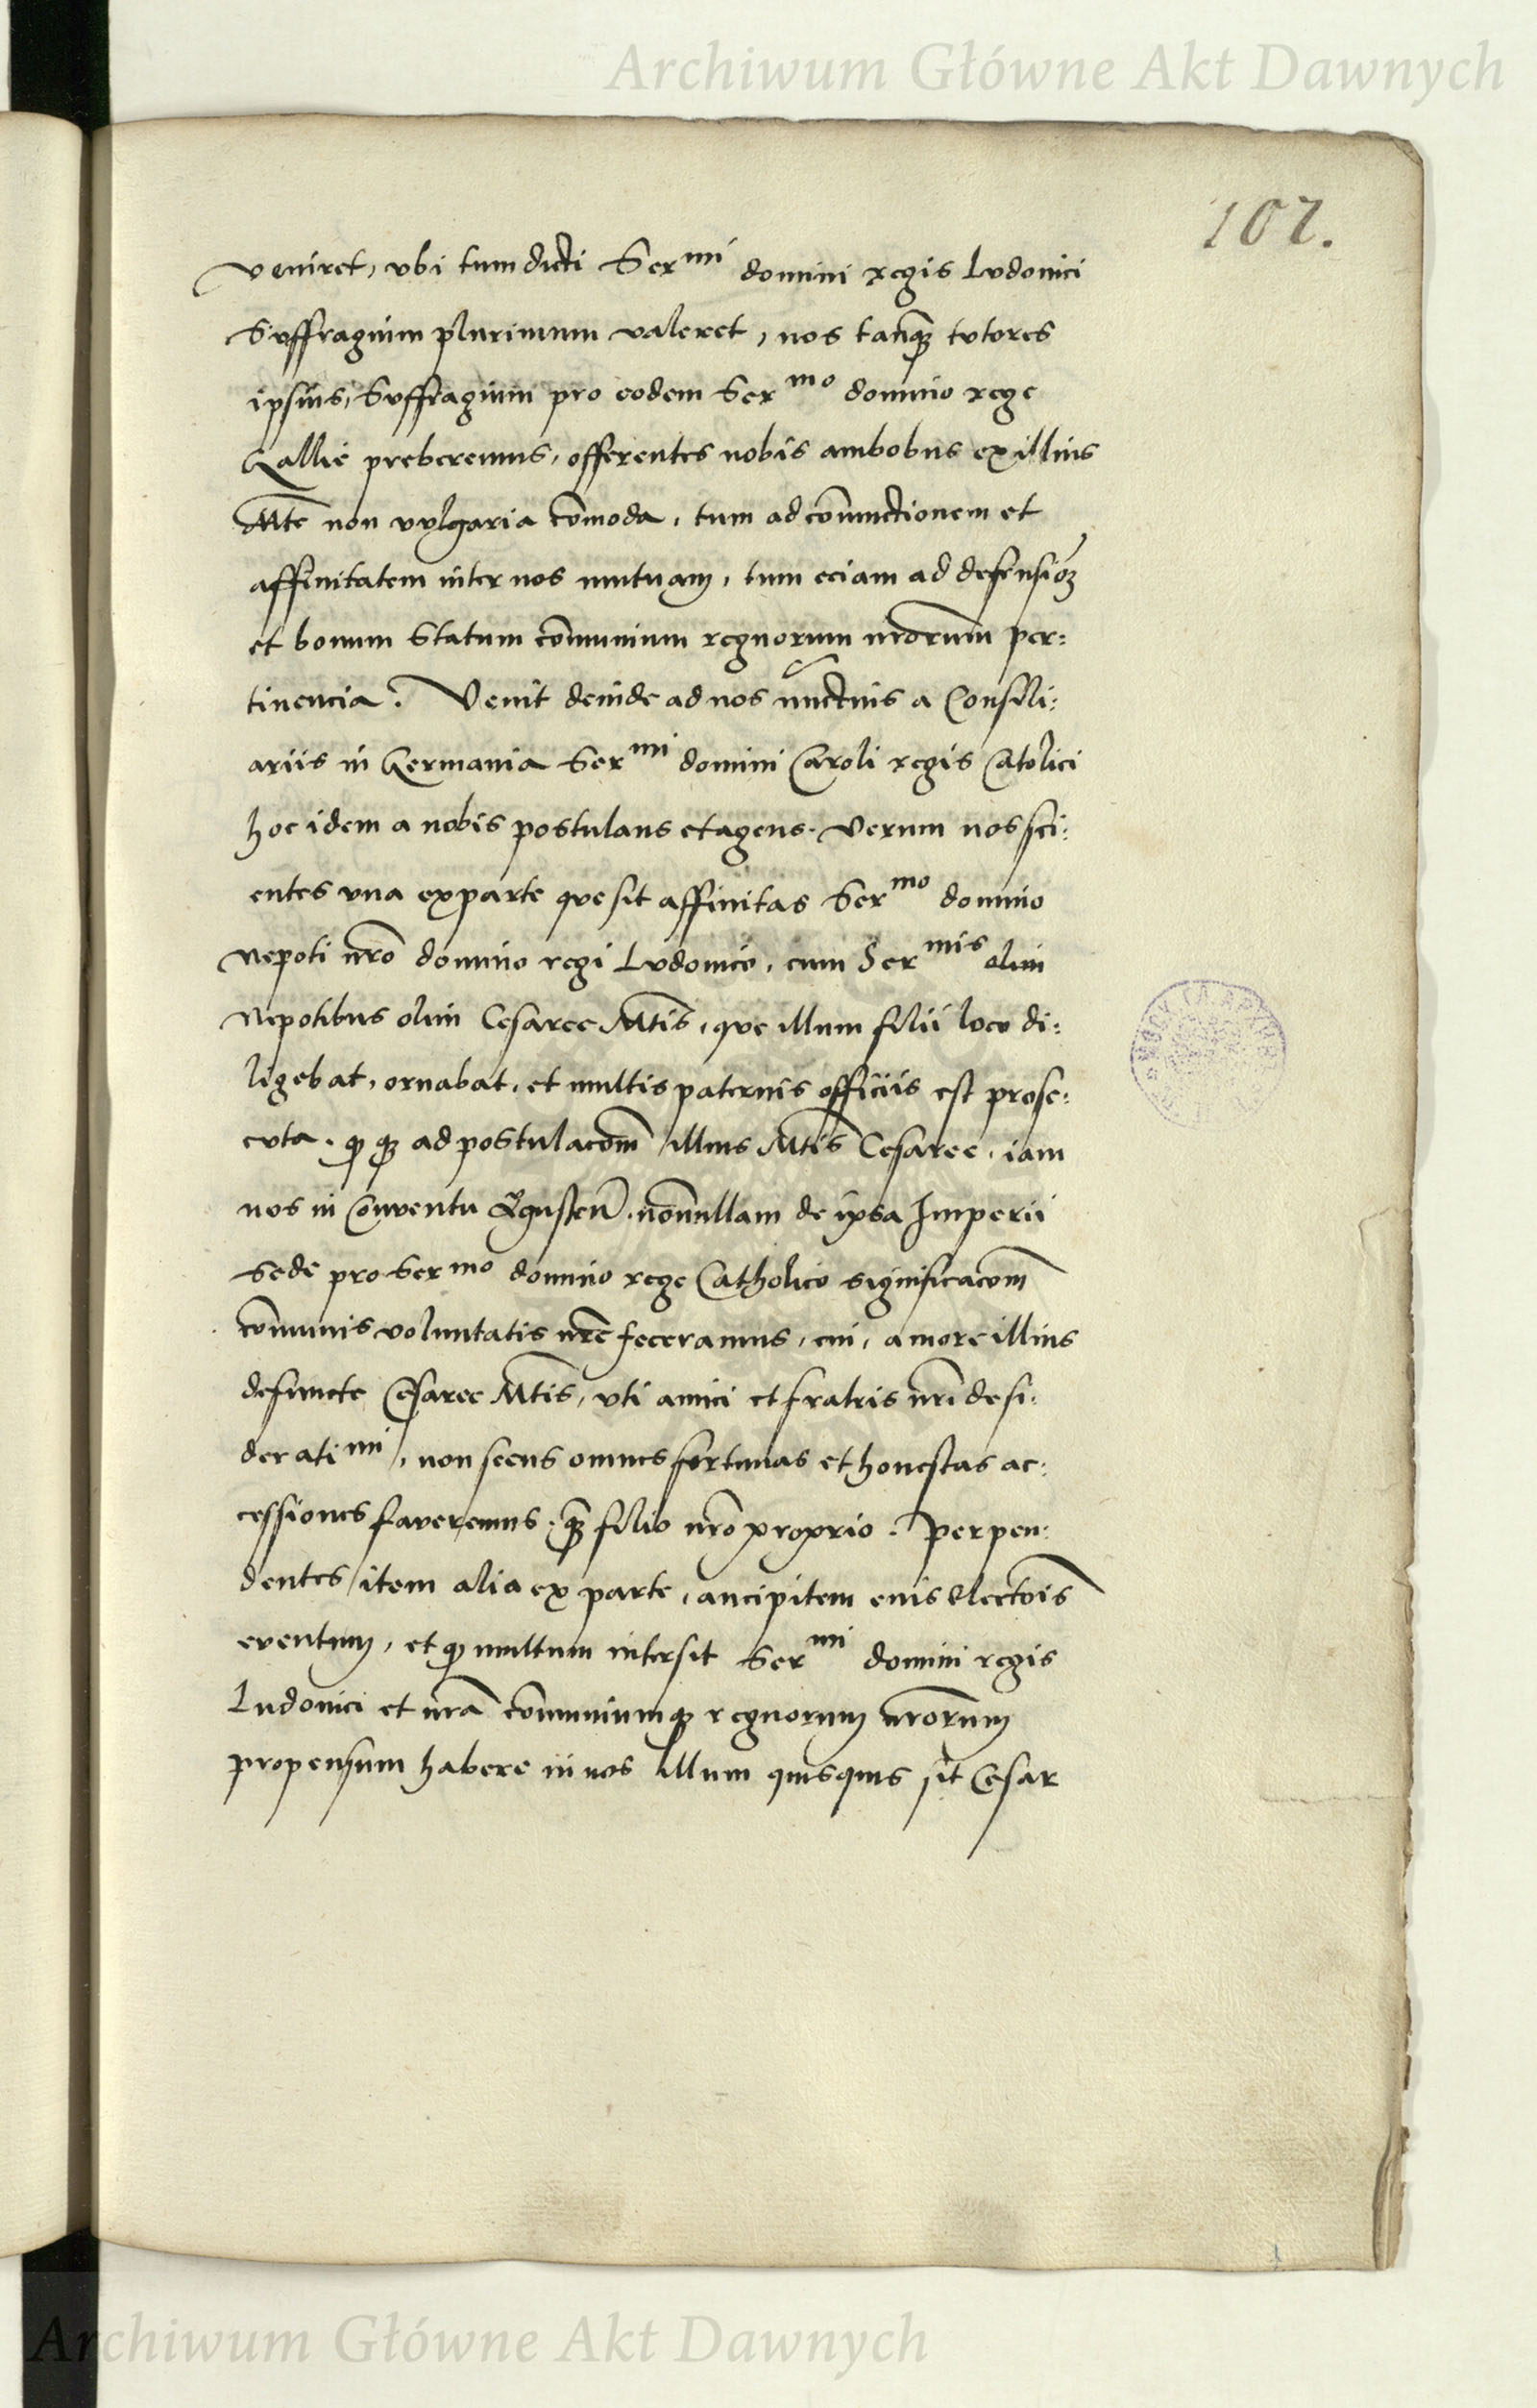 Archiwum Główne Akt Dawnych
107.
veniret, vbi tum dicti Ser mi domini regis Lvdovici
Svffragium plurimum valeret, nos tanq̃ tvtores
ipsius, Svffragium pro eodem Ser mo domino rege
Gallie preberemus, offerentes nobis ambobus ex illius
Mte non vvlgaria com̃oda, tum ad coniunctionem et
affinitatem inter nos mutuam, tum eciam ad defensioẽ
et bonum Statum com̃unium regnorum nrorum per:
tinencia. Venit deinde ad nos nunctius a Consili:
ariis in Germania Ser mi domini Caroli regis Catolici
hoc idem a nobis postulans et agens. Verum nos sci:
entes vna ex parte qve sit affinitas Ser mo domino
Nepoti nro domino regi Lvdovico, cum Ser mis olim
Nepotibus olim Cesaree Mtis, qve illum filii loco di:
ligebat, ornabat, et multis paternis officiis est prose:
cvta. qđ q̃ ad postulacom̃ illius Mtis Cesaree, iam
nos in Conventu Agusteñ. nonnullam de ipsa Imperii
Sede pro Ser mo domino rege Catholico significacom̃
com̃unis voluntatis nre feceramus, cui, amore illius
defuncte Cesaree Mtis, vti amici et fratris nri desi:
derati mi, non secus omnes fortunas et honestas ac:
cessiones faveremus, q̃ filio nro proprio. Perpen:
dentes item alia ex parte, ancipitem evis electois
eventum, et qđ multum intersit Ser mi domini regis
Ludovici et nra com̃uniumq̃ regnorum nrorum
propensum habere in nos illum quisquis sit Cesar
Archiwum Główne Akt Dawnych